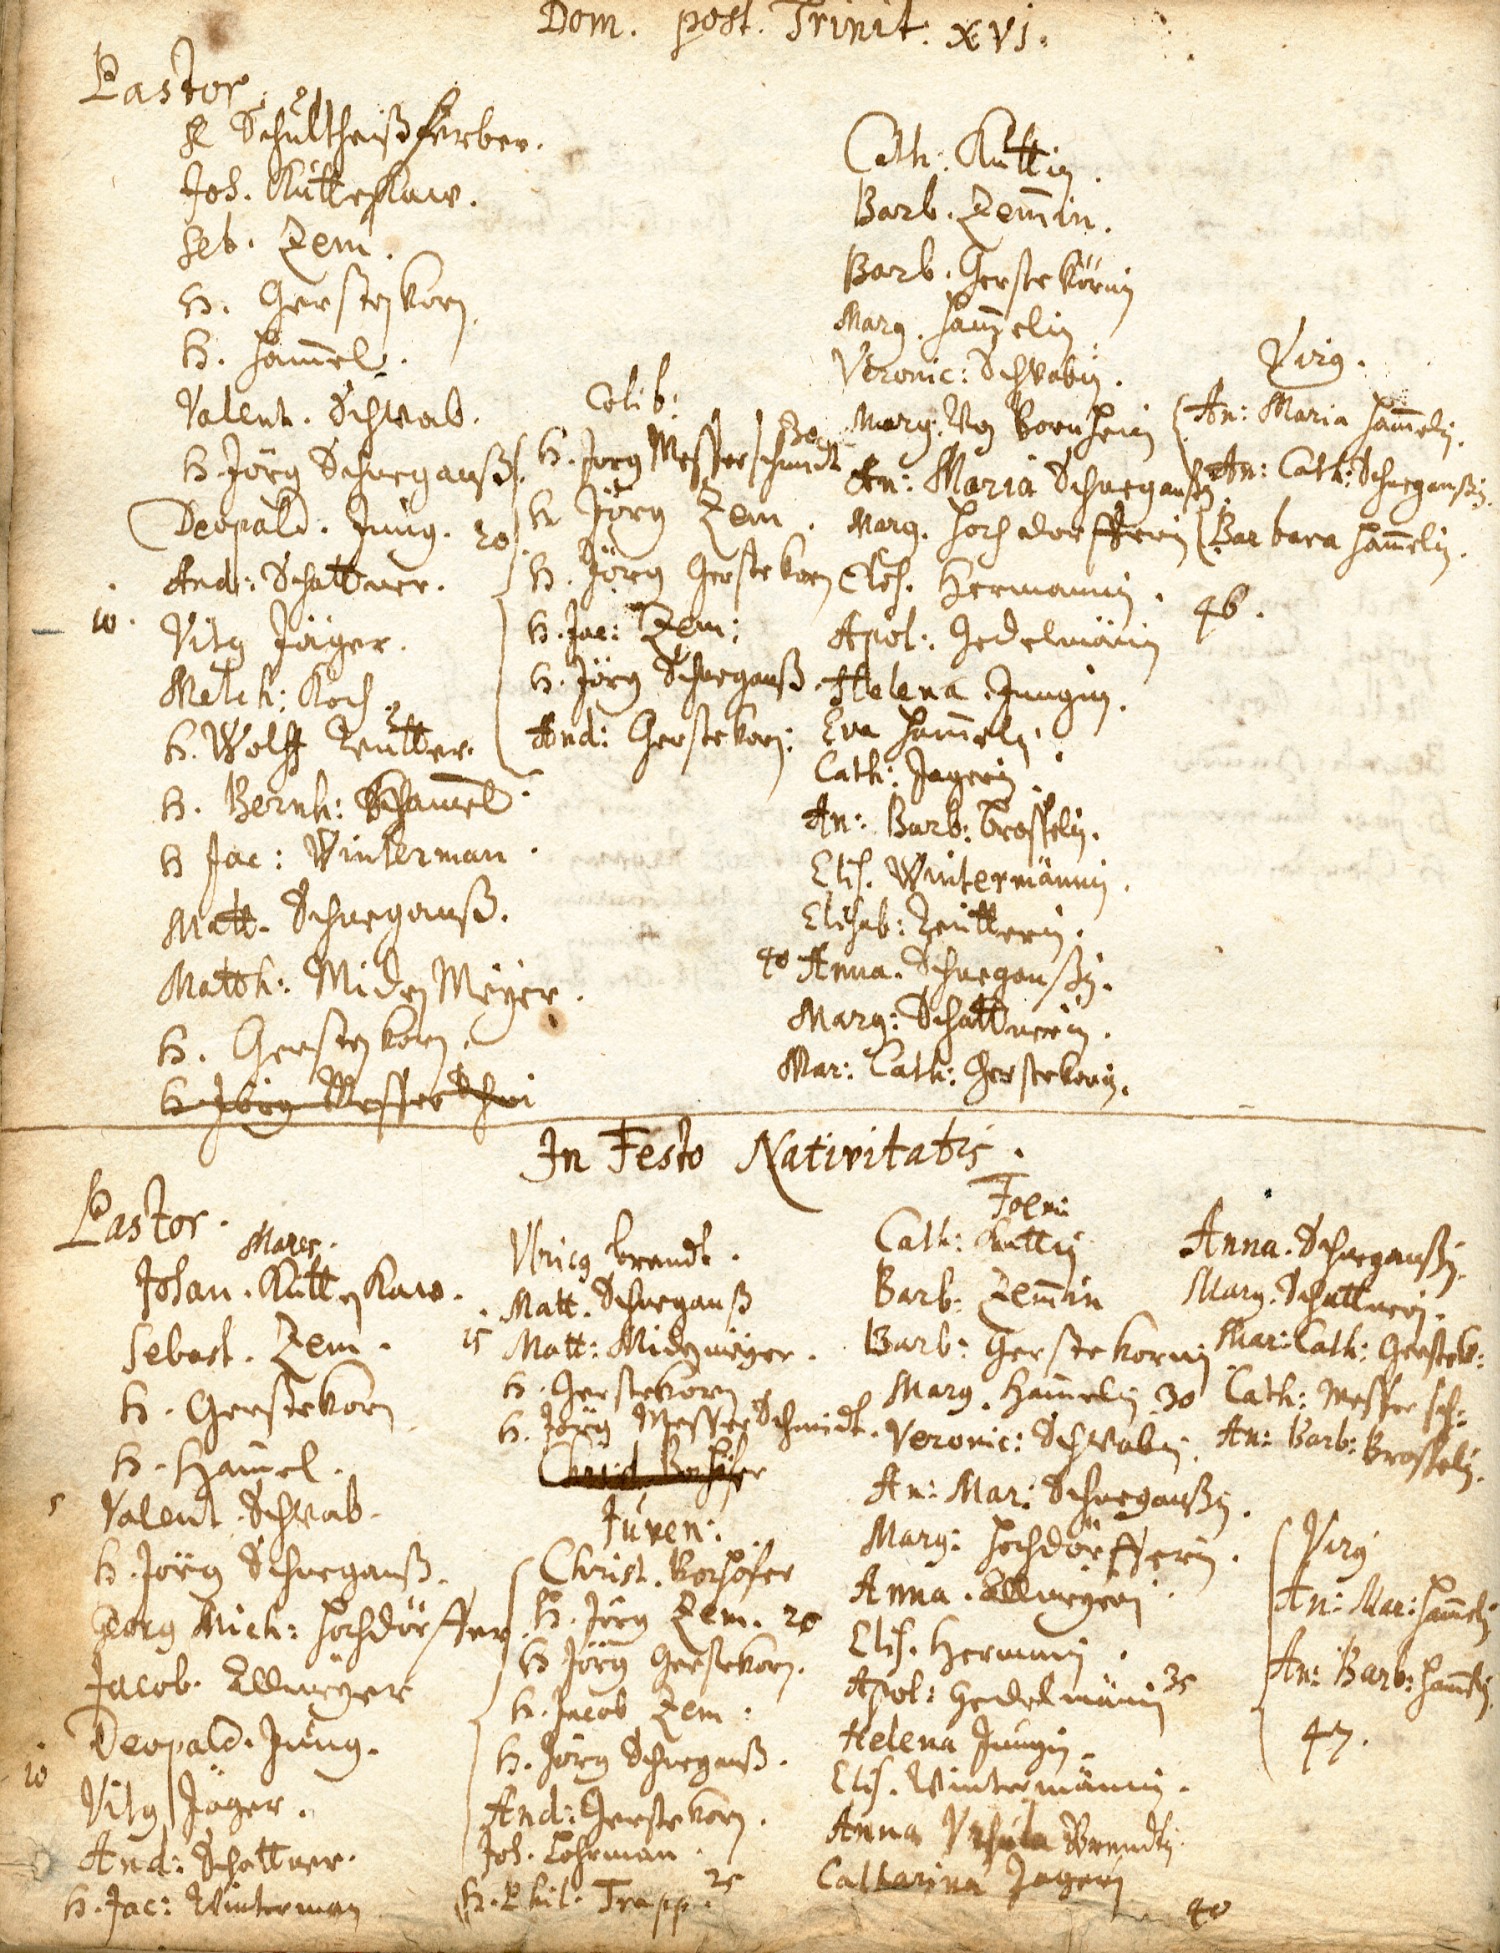 Dom. post. Trinit. XVI.
Pastor.
H Schultheiß ferber.
Joh. Kütten Kaw.
Seb. Zem.
H. Gerstenkorn
H. Ham̄el.
Valent. Schwab.
H Jörg Schnegauß.
Deopald. Jung.
And: Schattner.
10. Vitg Jäger.
Melch: Koch
H. Wolff Reütter.
H. Bernh: Ham̄el
H Jac: Winterman
Matt. Schnegauß.
Matth: Miden Meÿer.
H. Gerstenkorn.
H Jörg Messerschmi
Celib:
H. Jörg Messerschmidt
20 H Jörg Zem.
H. Jörg Gerstekorn
H. Jac: Zem:
H. Jörg Schnegauß.
And: Gerstekorn:
Cath: Küttin.
Barb. Zem̄in.
Barb. Gerstekörnin
Marg. Ham̄elin
Veronic: Schwabin.
30 Marg. Von Bornheim
An: Maria Schnegaußin
Marg. Hochdorfferin
Elis. Hermannin.
Apol: Gedelmänin
Helena Jungin.
Eva Ham̄elin
Cath: Jagerin
An: Barb: Brosselin.
Elis. Wintermännin.
Elisab: Reütterin.
40 Anna. Schnegaußin.
Marg: Schattnerin.
Mar: Cath: Gerstekorn.
Virg.
An: Maria Ham̄elin.
An: Cath: Schnegaußin.
Barbara Ham̄elin.
46.
In Festo Nativitatis.
Pastor.
Mares.
Johan. Kütten Kaw.
Sebast. Zem.
H. Gerstekorn
H. Ham̄el.
5 Valent Schwab.
H. Jörg Schnegauß.
Georg Mich: Hochdörffer.
Jacob. Ellmeÿer
Deopald. Jung.
10 Vitg Jäger.
And: Schattner.
H. Jac: Winterman
Vricg Brandt.
Matt. Schnegauß
15 Matt: Midenmeÿer.
H. Gerstekorn
H. Jörg Messerschmidt.
Christ. Borhöfer
Juven:
Christ. Borhöfer
H. Jörg Zem. 20
H Jörg Gerstekorn.
H. Jacob Zem:
H. Jörg Schnegauß.
And: Gerstekorn.
Joh. Lohrman.
H. Phil. Trapp. 25
Foem:
Cath: Kuttin
Barb: Zem̄in
Barb: Gerstekornin
Marg. Ham̄elin 30
Veronic: Schwabin.
An: Mar: Schnegaußin.
Marg: Hochdörfferin.
Anna. Ellmeyerin.
Elis. Hermanin.
Apol: Gedelmänin 35
Helena Jungin
Elis. Wintermänin.
Anna Vrsula Brendtin
Catharina Jagerin
40
Anna. Schnegaußin.
Marg. Schattnerin.
Mar: Cath: Gerstek:
Cath: Messersch:
An: Barb: Brosselin.
Virg
An: Mar: Ham̄elin
An: Barb: Ham̄elin.
47.